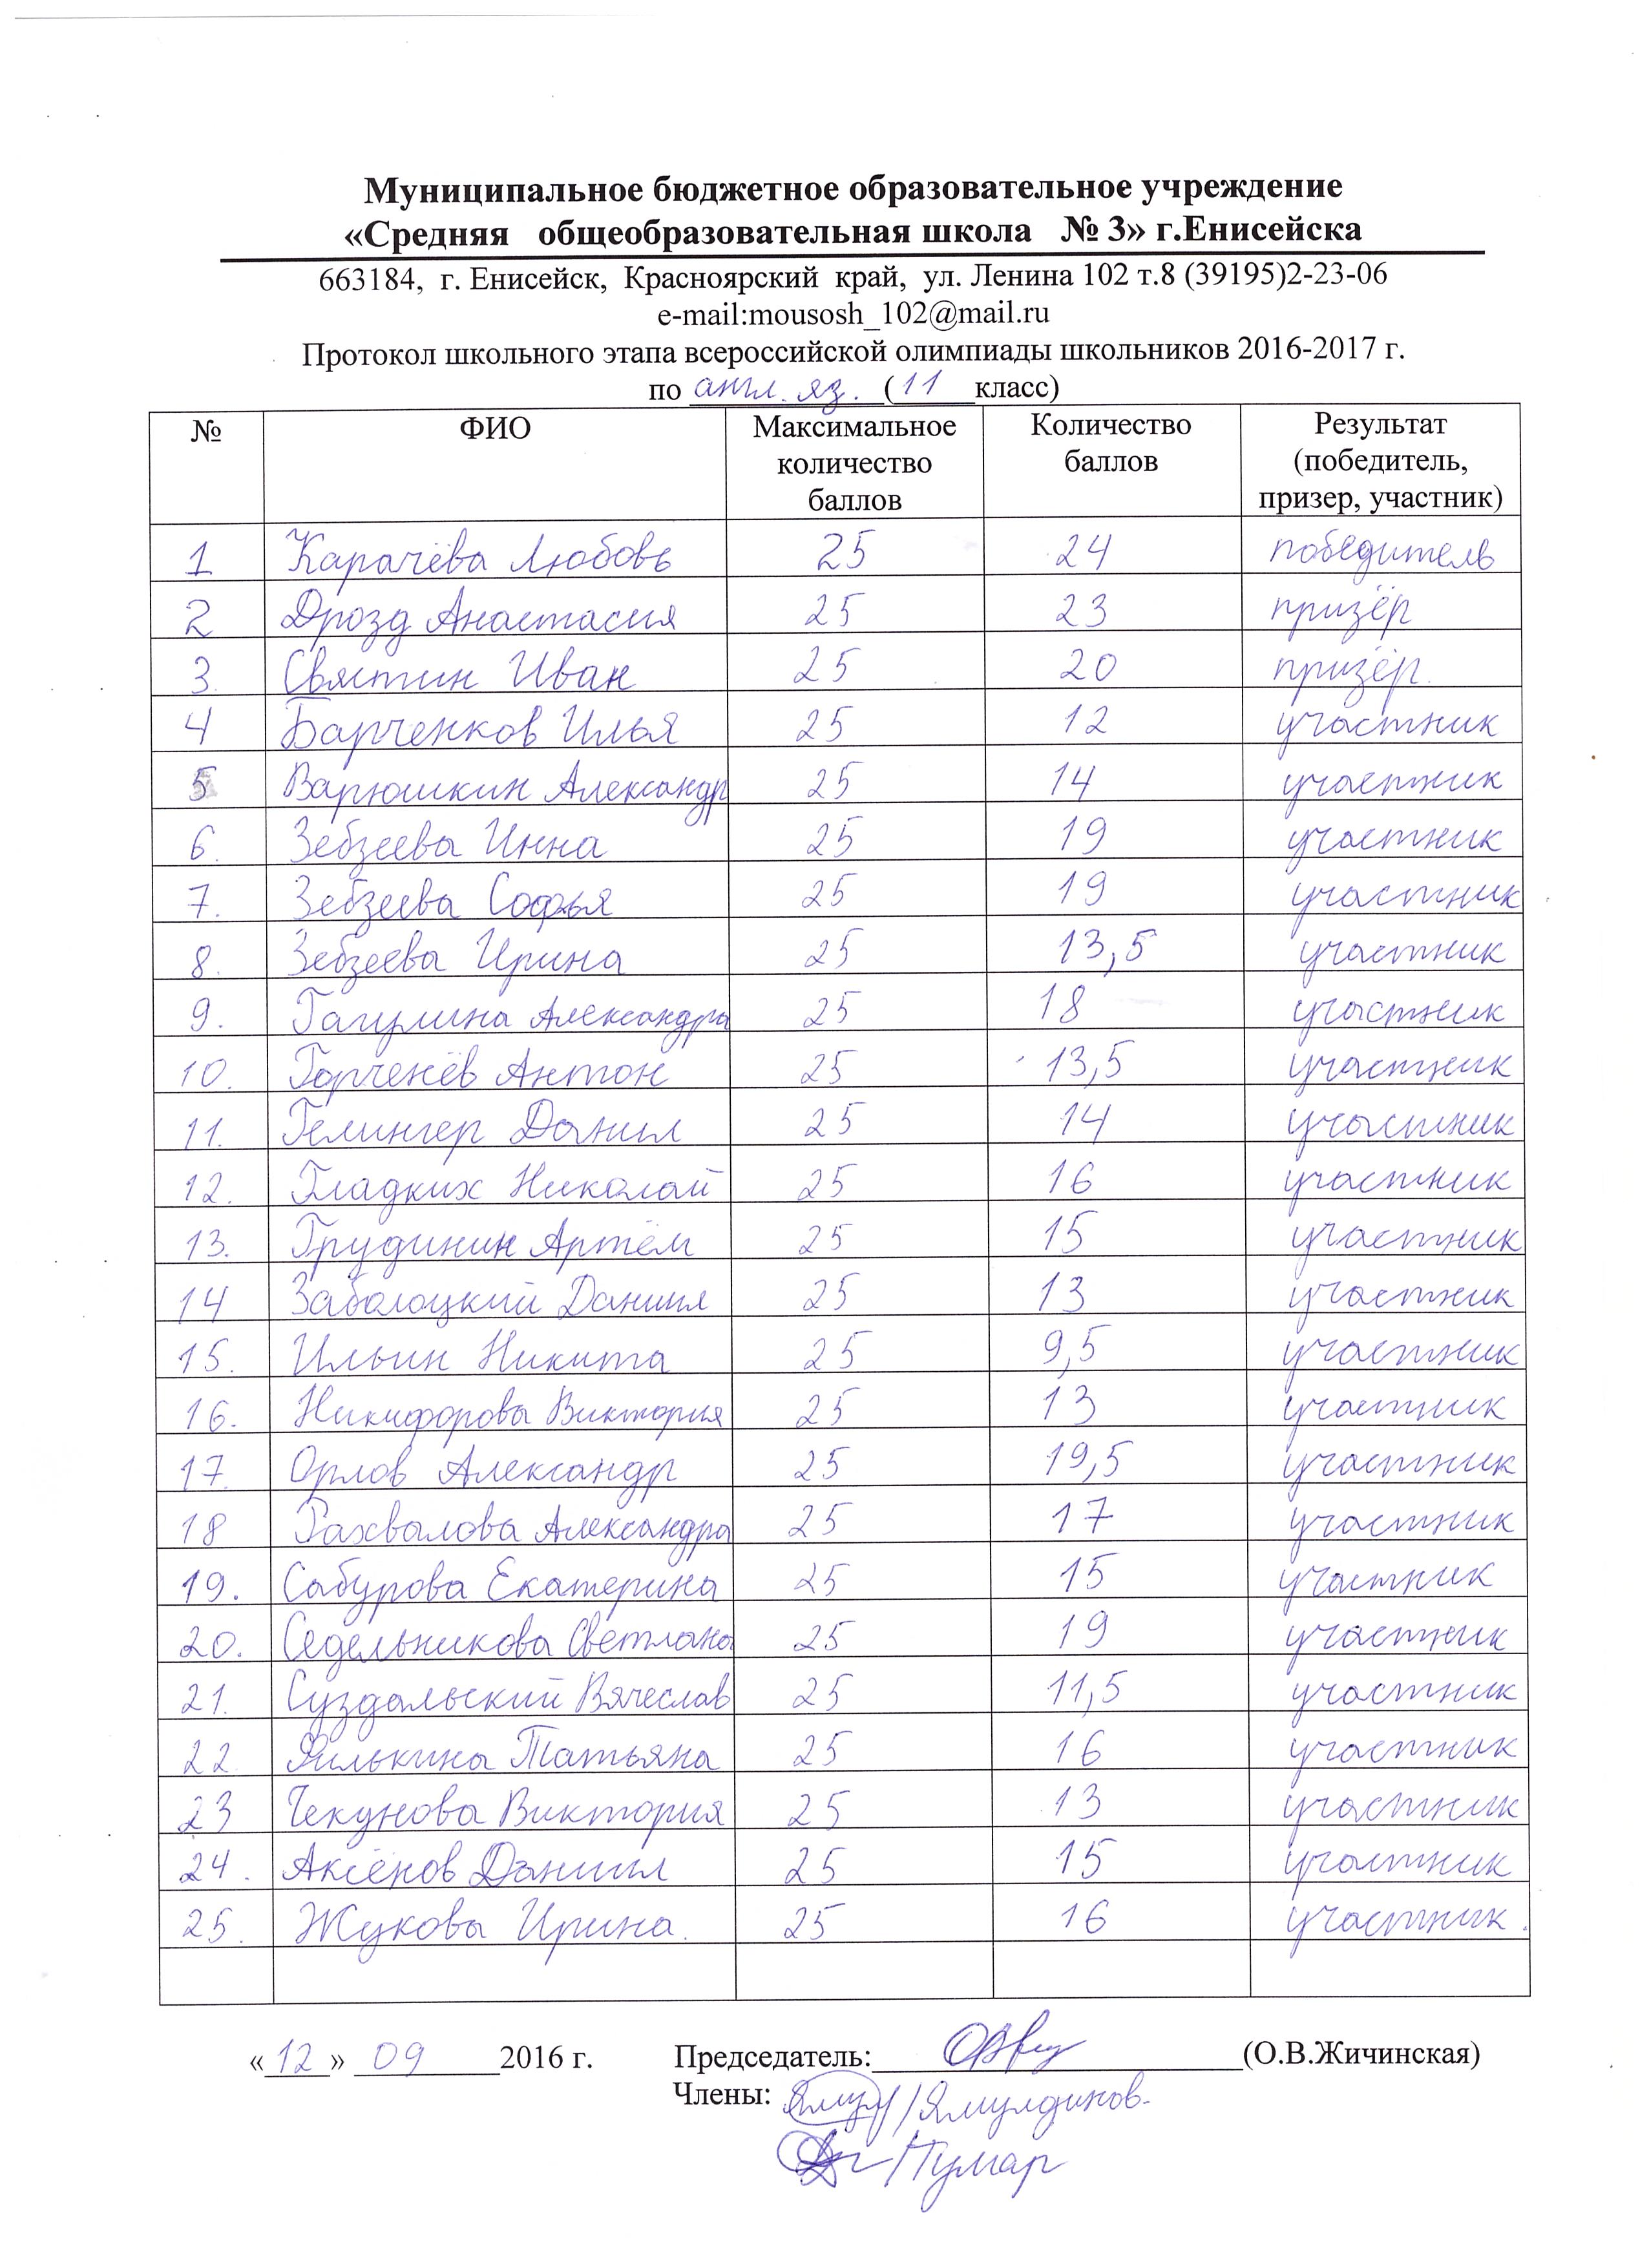 Муниципальное бюджетное образовательное учреждение
«Средняя общеобразовательная школа № 3» г.Енисейска
663184, г. Енисейск, Красноярский край, ул. Ленина 102 т.8 (39195)2-23-06
e-mail:mousosh_102@mail.ru
Протокол школьного этапа всероссийской олимпиады школьников 2016-2017 г.
по англ. яз. (11 класс)
№ ФИО Максимальное количество баллов Количество баллов Результат (победитель, призер, участник)
1 Карачёва Любовь 25 24 победитель
2 Дрозд Анастасия 25 23 призёр
3. Святин Иван 25 20 призёр.
4 Барченков Илья 25 12 участник
5 Варюшкин Александр 25 14 участник
6. Зебзеева Инна 25 19 участник
7. Зебзеева Софья 25 19 участник
8. Зебзеева Ирина 25 13,5 участник
9. Гагулина Александра 25 18 участник
10. Горченёв Антон 25 13,5 участник
11. Гелингер Данил 25 14 участник
12. Гладких Николай 25 16 участник
13. Грудинин Артём 25 15 участник
14 Заболоцкий Даниил 25 13 участник
15. Ильин Никита 25 9,5 участник
16. Никифорова Виктория 25 13 участник
17. Орлов Александр 25 19,5 участник
18 Рахвалова Александра 25 17 участник
19. Сабурова Екатерина 25 15 участник
20. Седельникова Светлана 25 19 участник
21. Суздальский Вячеслав 25 11,5 участник
22 Филькина Татьяна 25 16 участник
23 Чекунова Виктория 25 13 участник
24. Аксёнов Даниил 25 15 участник
25. Жукова Ирина. 25 16 участник.
«12» 09 2016 г. Председатель: (О.В.Жичинская)
Члены: / Ямулдинов.
/ Тумар